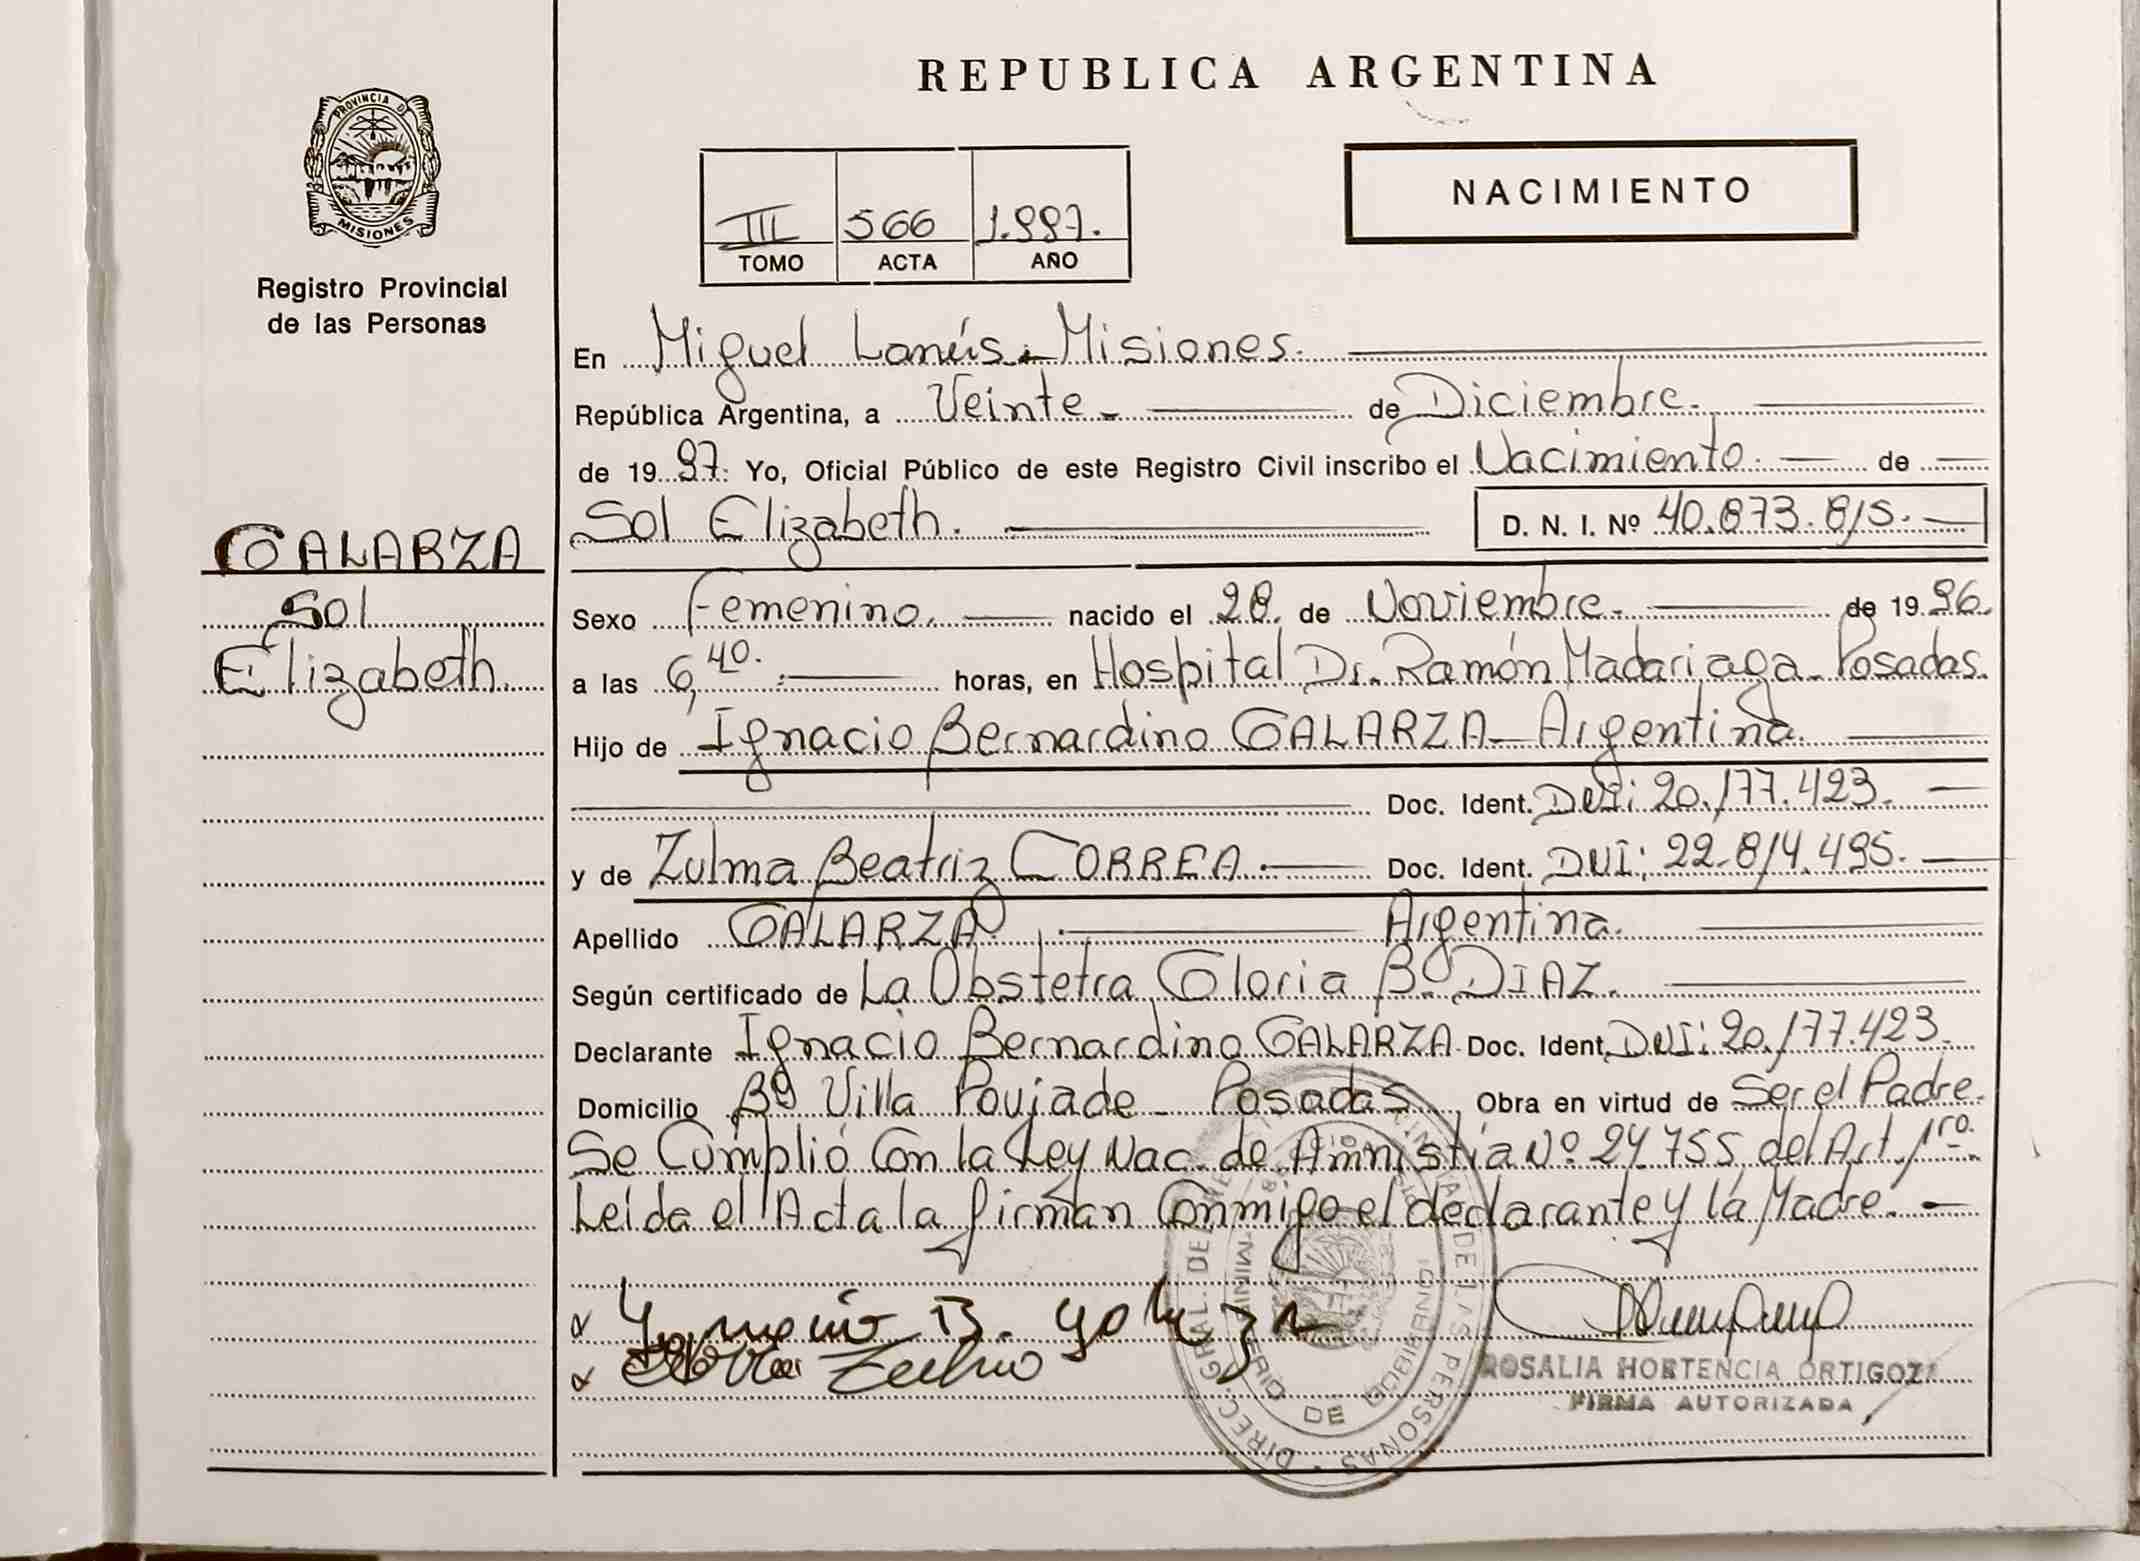 REPUBLICA ARGENTINA
PROVINCIA D
MISIONES
Registro Provincial
de las Personas
NACIMIENTO
III 566 1.997.
TOMO ACTA AÑO
En Miguel Lanús - Misiones.
República Argentina, a Veinte de Diciembre.
de 19 97. Yo, Oficial Público de este Registro Civil inscribo el Nacimiento. de
Sol Elizabeth. D. N. I. Nº 40.873.815.
GALARZA
Sol
Elizabeth.
Sexo Femenino. nacido el 28. de Noviembre. de 19 96.
a las 6,40. horas, en Hospital Dr. Ramón Madariaga - Posadas.
Hijo de Ignacio Bernardino GALARZA - Argentina.
Doc. Ident. DNI: 20.177.423.
y de Zulma Beatriz CORREA. Doc. Ident. DNI: 22.814.495.
Apellido GALARZA Argentina.
Según certificado de La Obstetra Gloria B. DIAZ.
Declarante Ignacio Bernardino GALARZA. Doc. Ident. DNI: 20.177.423.
Domicilio Bº Villa Poujade - Posadas Obra en virtud de Ser el Padre.
Se Cumplió Con la Ley Nac. de Amnistía Nº 24.755, del Art. 1ro.
Leída el Acta la firman Conmigo el declarante y la Madre. -
B. Galarza
ROSALIA HORTENCIA ORTIGOZA
FIRMA AUTORIZADA